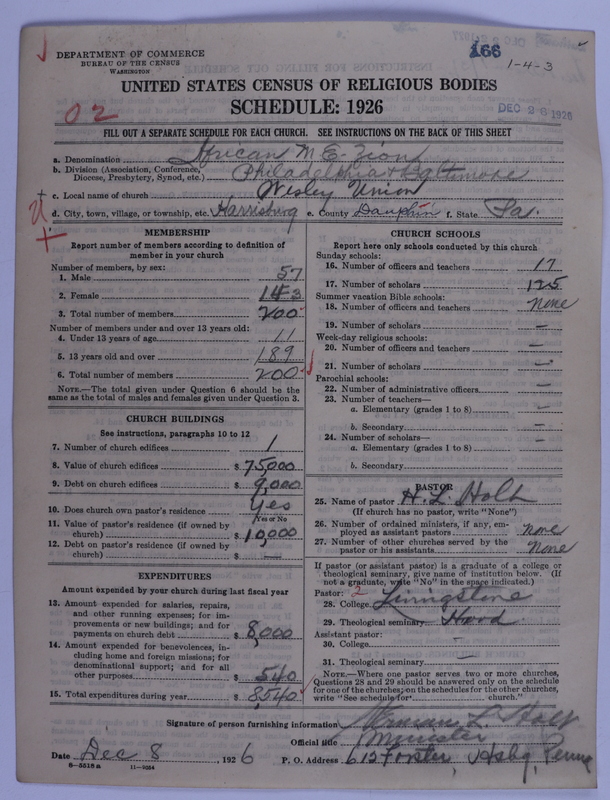 166
DEC 28 1926
1-4-3
DEPARTMENT OF COMMERCE
BUREAU OF THE CENSUS
WASHINGTON
UNITED STATES CENSUS OF RELIGIOUS BODIES
SCHEDULE: 1926
02
FILL OUT A SEPARATE SCHEDULE FOR EACH CHURCH. SEE INSTRUCTIONS ON THE BACK OF THIS SHEET
a. Denomination African M. E. Zion
b. Division (Association, Conference, Diocese, Presbytery, Synod, etc.) Philadelphia & Baltimore
c. Local name of church Wesley Union
d. City, town, village, or township, etc. Harrisburg e. County Dauphin f. State Pa.
MEMBERSHIP
Report number of members according to definition of
member in your church
Number of members, by sex:
1. Male 57
2. Female 143
3. Total number of members 200
Number of members under and over 13 years old:
4. Under 13 years of age 11
5. 13 years old and over 189
6. Total number of members 200
NOTE.—The total given under Question 6 should be the
same as the total of males and females given under Question 3.
CHURCH BUILDINGS
See instructions, paragraphs 10 to 12
7. Number of church edifices 1
8. Value of church edifices $ 75,000
9. Debt on church edifices $ 9,000
10. Does church own pastor's residence Yes
Yes or No
11. Value of pastor's residence (if owned by
church) $ 10,000
12. Debt on pastor's residence (if owned by
church) $ —
EXPENDITURES
Amount expended by your church during last fiscal year
13. Amount expended for salaries, repairs,
and other running expenses; for im-
provements or new buildings; and for
payments on church debt $ 8,000
14. Amount expended for benevolences, in-
cluding home and foreign missions; for
denominational support; and for all
other purposes $ 540
15. Total expenditures during year $ 8540
CHURCH SCHOOLS
Report here only schools conducted by this church
Sunday schools:
16. Number of officers and teachers 17
17. Number of scholars 125
Summer vacation Bible schools:
18. Number of officers and teachers None
19. Number of scholars —
Week-day religious schools:
20. Number of officers and teachers —
21. Number of scholars —
Parochial schools:
22. Number of administrative officers —
23. Number of teachers—
a. Elementary (grades 1 to 8) —
b. Secondary —
24. Number of scholars—
a. Elementary (grades 1 to 8) —
b. Secondary
PASTOR
25. Name of pastor H. L. Holt
(If church has no pastor, write "None")
26. Number of ordained ministers, if any, em-
ployed as assistant pastors None
27. Number of other churches served by the
pastor or his assistants None
If pastor (or assistant pastor) is a graduate of a college or
theological seminary, give name of institution below. (If
not a graduate, write "No" in the space indicated.)
Pastor: 2
28. College Livingstone
29. Theological seminary Hood
Assistant pastor:
30. College —
31. Theological seminary —
NOTE.—Where one pastor serves two or more churches,
Questions 28 and 29 should be answered only on the schedule
for one of the churches; on the schedules for the other churches,
write "See schedule for church."
Signature of person furnishing information L. Holt
Official title Minister
Date Dec 8 1926 P. O. Address 612 Forster, Hsbg, Penna
8-5518 a 11-9264